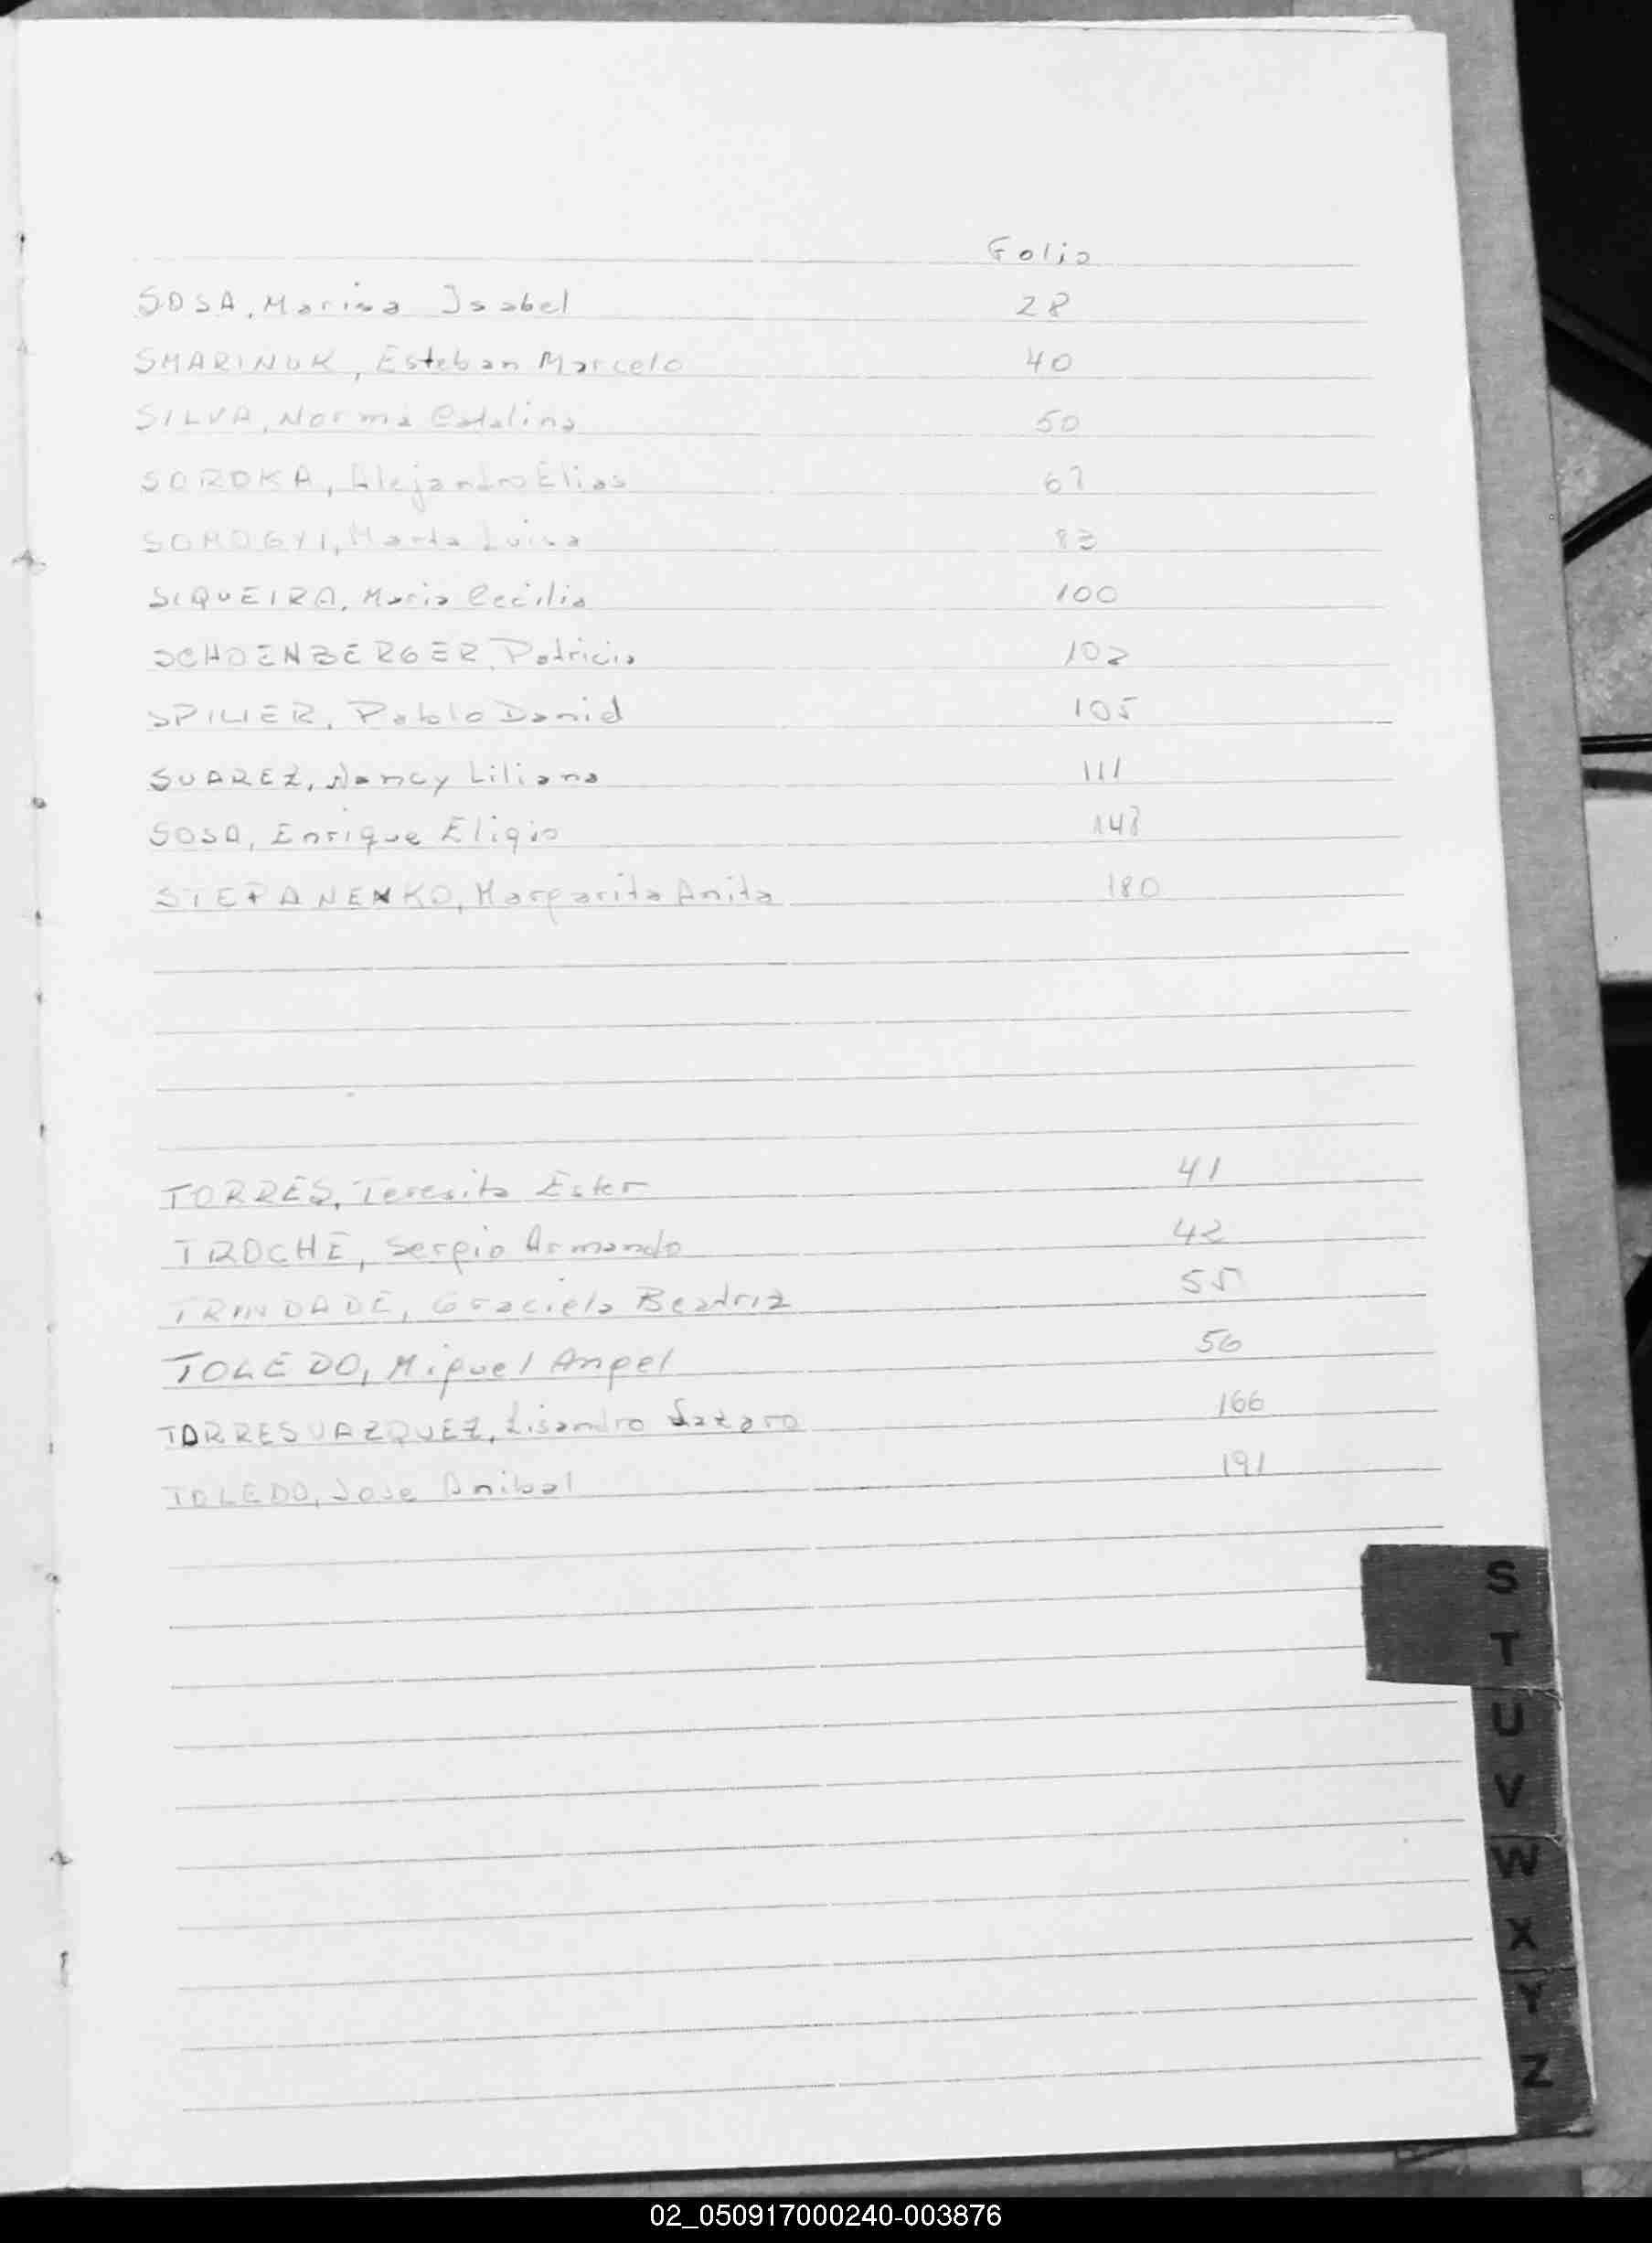 Folio
SOSA, Marisa Isabel 28
SMARINUK, Esteban Marcelo 40
SILVA, Norma Catalina 50
SOROKA, Alejandro Elias 67
SOMOGYI, Marta Luisa 83
SIQUEIRA, Maria Cecilia 100
SCHOENBERGER, Patricia 102
SPILIER, Pablo Daniel 105
SUAREZ, Nancy Liliana 111
SOSA, Enrique Eligio
STEFANENKO, Margarita Anita 180
TORRES, Teresita Ester 41
TROCHE, Sergio Armando 42
TRINDADE, Graciela Beatriz 55
TOLEDO, Miguel Angel 56
TORRES VAZQUEZ, Lisandro 166
TOLEDO, Jose Anibal 191
S
T
U
V
W
X
Y
Z
02_050917000240-003876